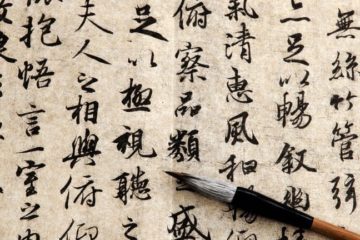 無絲竹管弦
亦足以暢叙幽
氣清惠風和暢仰
俯察品類之盛
足以極視聽之
夫人之相與俯仰
懷抱悟言一室之内